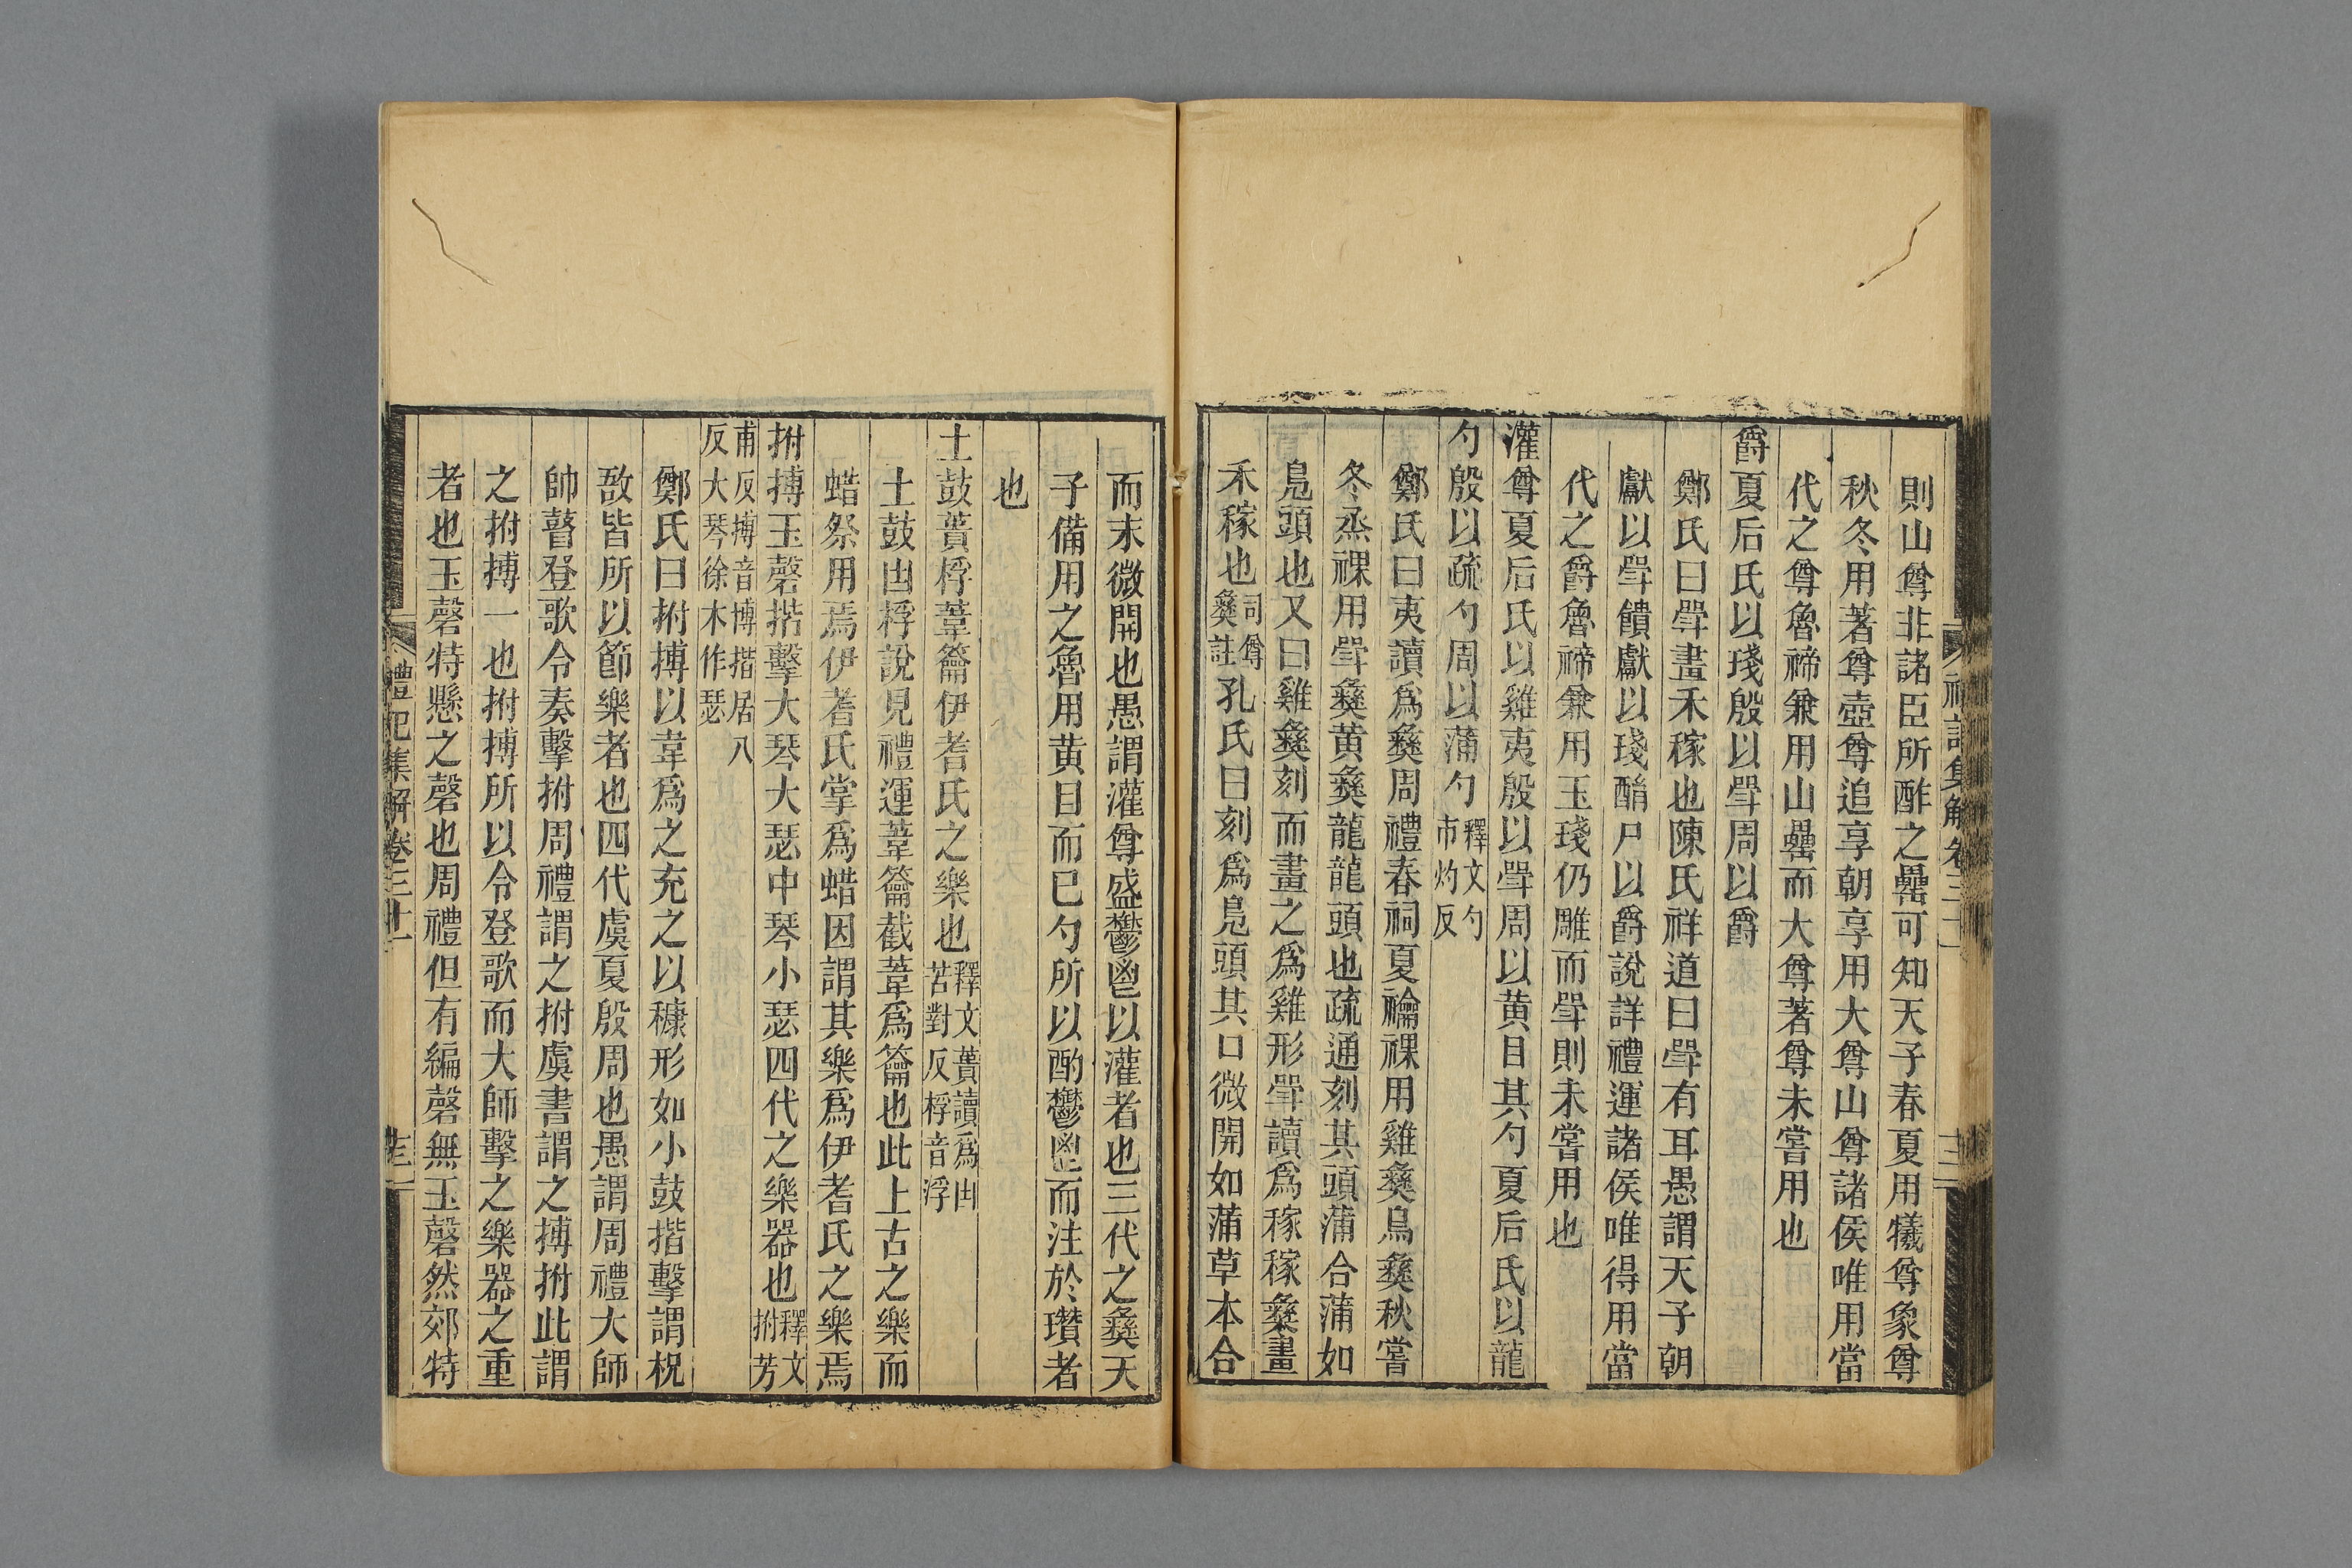 則山尊非諸臣所酢之罍可知天子春夏用犧尊象尊
秋冬用著尊壺尊追享朝享用大尊山尊諸侯唯用當
代之尊魯禘兼用山罍而大尊著尊未嘗用也
爵夏后氏以琖殷以斝周以爵
鄭氏曰斝畫禾稼也陳氏祥道曰斝有耳愚謂天子朝
獻以斝饋獻以琖酳尸以爵說詳禮運諸侯唯得用當
代之爵魯禘兼用玉琖仍雕而斝則未嘗用也
灌尊夏后氏以雞夷殷以斝周以黄目其勺夏后氏以龍
勺殷以疏勺周以蒲勺釋文勺市灼反
鄭氏曰夷讀爲彝周禮春祠夏禴祼用雞彝鳥彝秋嘗
冬烝祼用斝彝黄彝龍龍頭也疏通刻其頭蒲合蒲如
鳧頭也又曰雞彝刻而畫之爲雞形斝讀爲稼稼彝畫
禾稼也司尊彝註孔氏曰刻爲鳧頭其口微開如蒲草本合
而末微開也愚謂灌尊盛鬱鬯以灌者也三代之彝天
子備用之魯用黄目而已勺所以酌鬱鬯而注於瓚者
也
土鼓蕢桴葦籥伊耆氏之樂也釋文蕢讀爲凷苦對反桴音浮
土鼓凷桴說見禮運葦籥截葦爲籥也此上古之樂而
蜡祭用焉伊耆氏掌爲蜡因謂其樂爲伊耆氏之樂焉
拊搏玉磬揩擊大琴大瑟中琴小瑟四代之樂器也釋文拊芳
甫反搏音博揩居八反大琴徐本作瑟
鄭氏曰拊搏以韋爲之充之以穅形如小鼓揩擊謂柷
敔皆所以節樂者也四代虞夏殷周也愚謂周禮大師
帥瞽登歌令奏擊拊周禮謂之拊虞書謂之搏拊此謂
之拊搏一也拊搏所以令登歌而大師擊之樂器之重
者也玉磬特懸之磬也周禮但有編磬無玉磬然郊特
禮記集解卷三十一